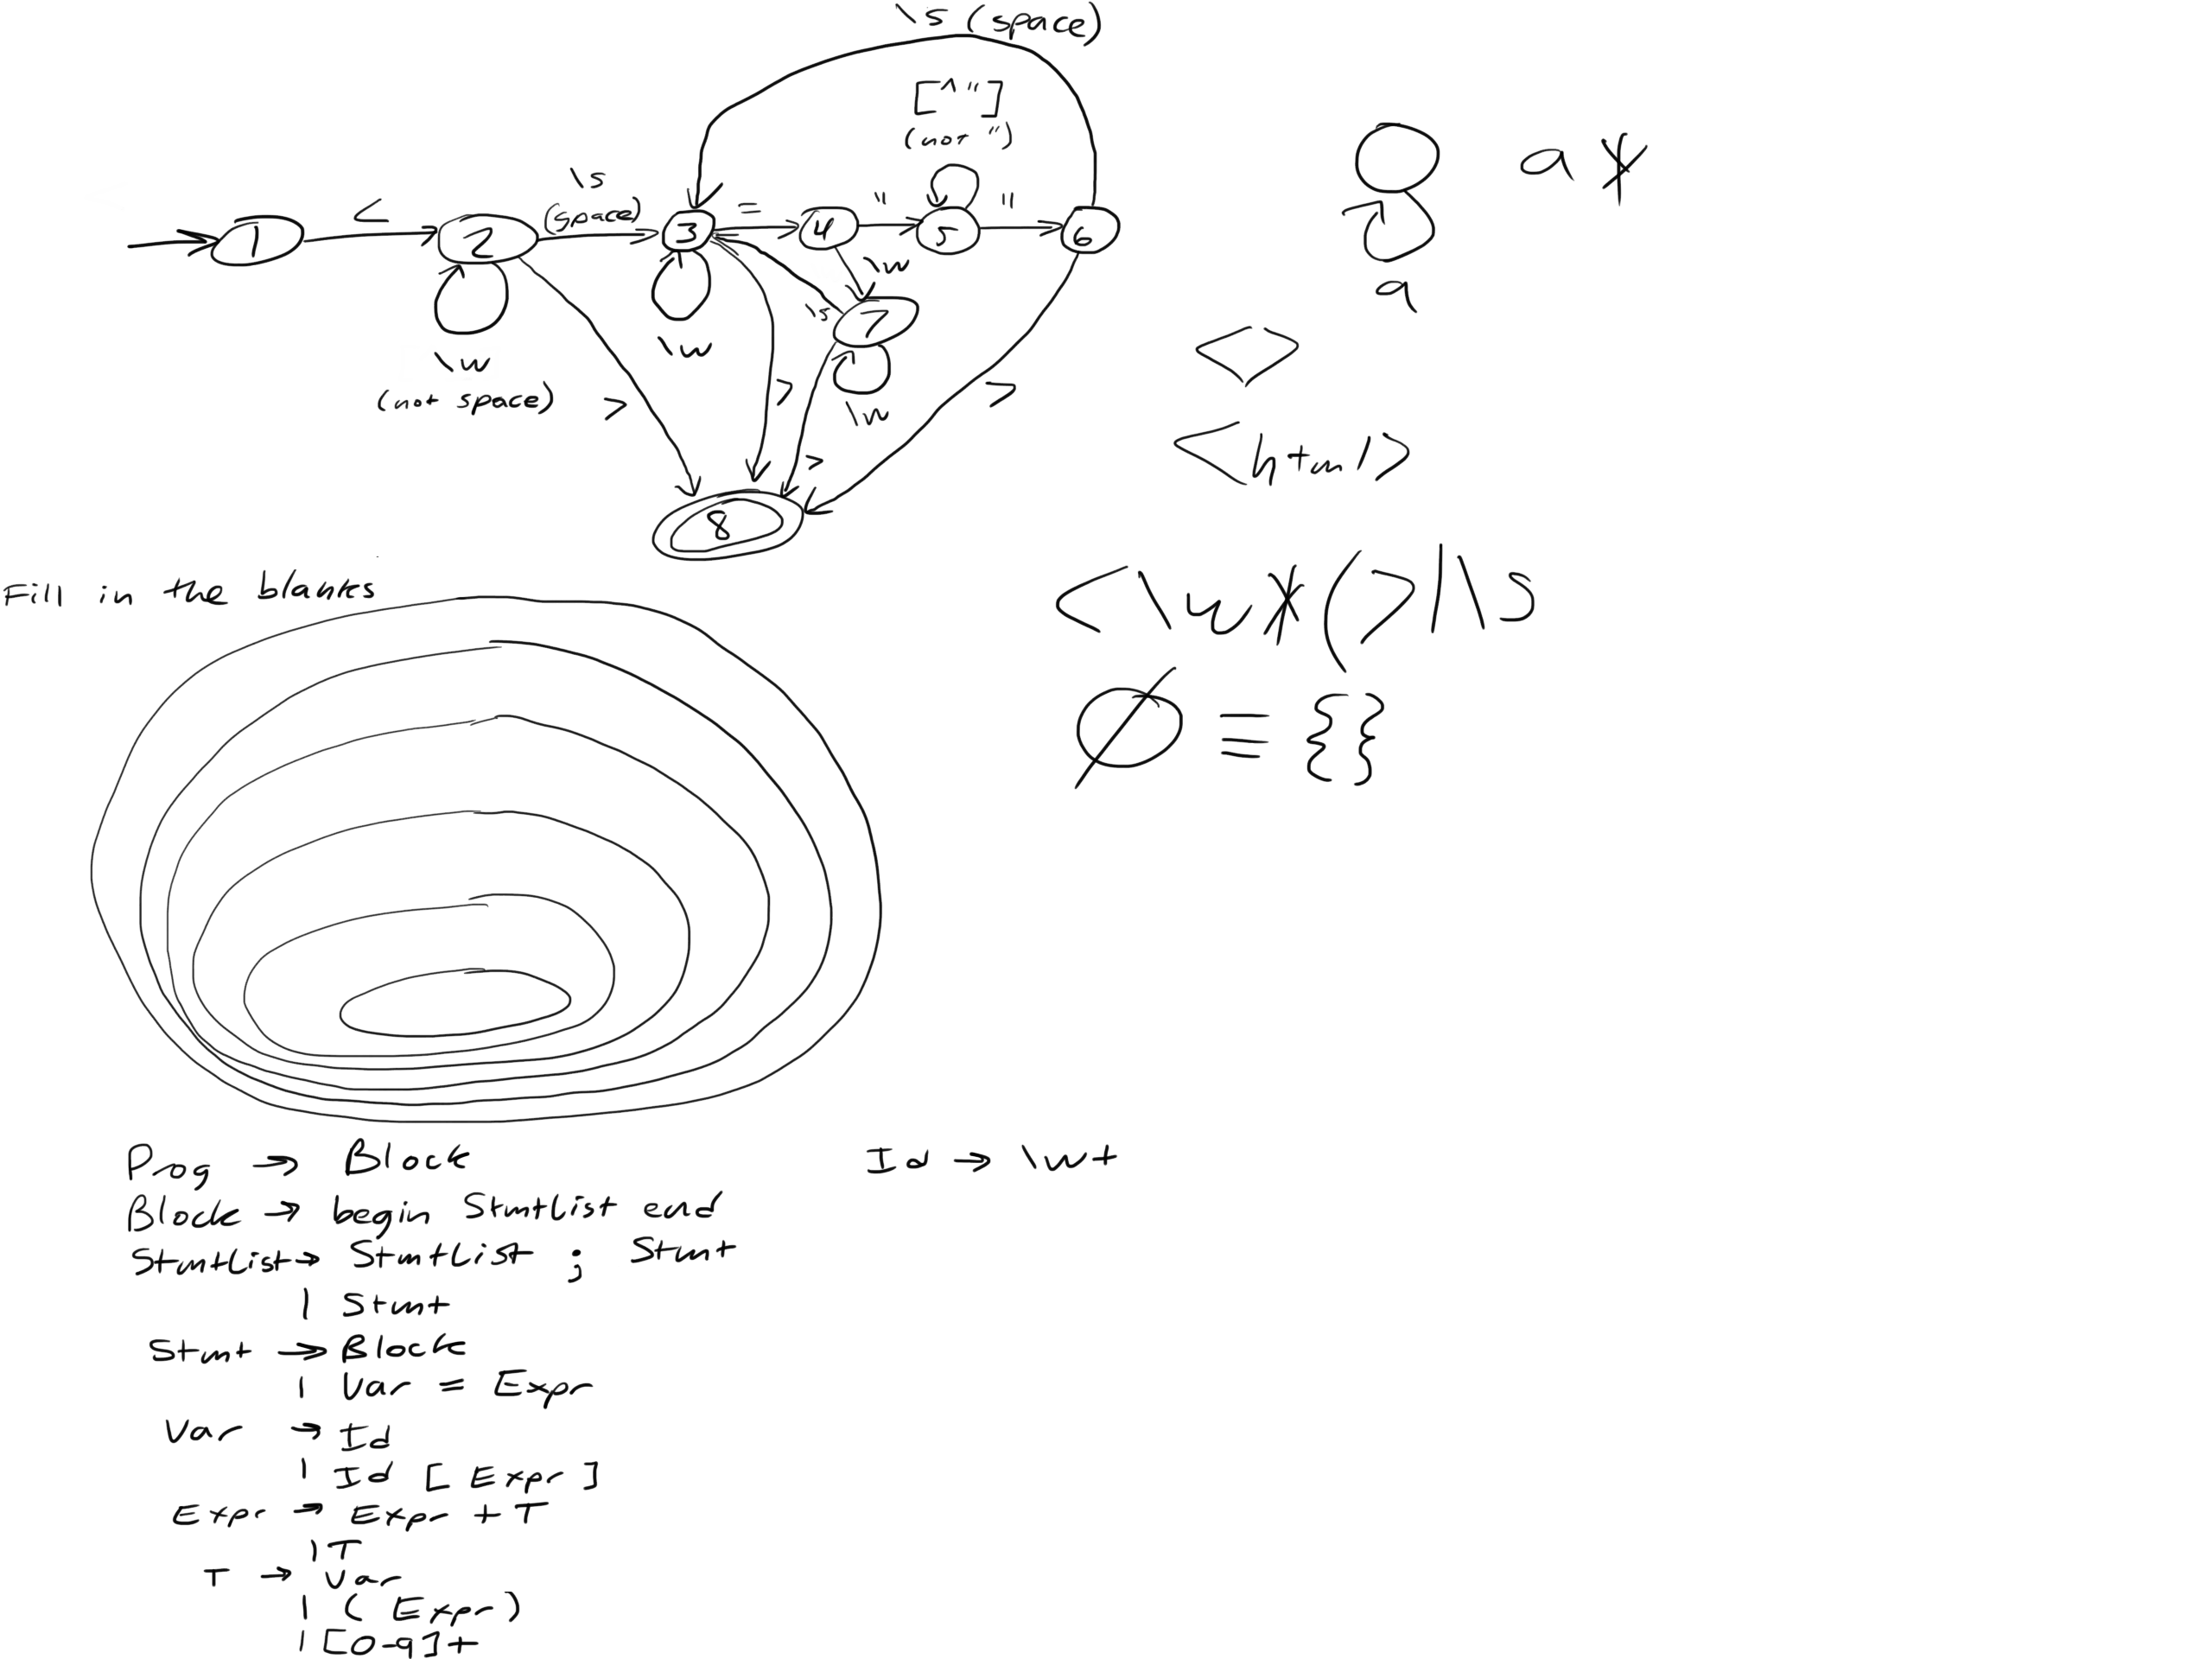 \s (space)
[^"]
(not ")
a *
\s
(space)
<
=
"
"
1
2
3
4
5
6
\w
a
\s
7
\w
(not space)
\w
>
>
\w
>
>
8
<>
<html>
<\w*(>|\s
Fill in the blanks
∅ ≡ {}
Prog → Block
Id → \w+
Block → begin StmtList end
StmtList → StmtList ; Stmt
| Stmt
Stmt → Block
| Var = Expr
Var → Id
| Id [ Expr ]
Expr → Expr + T
| T
T → Var
| ( Expr )
| [0-9]+